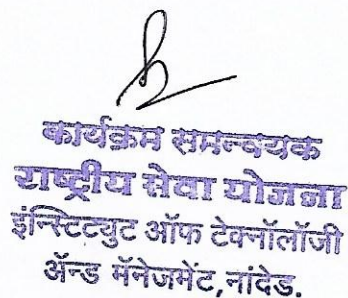 कार्यक्रम समन्वयक
राष्ट्रीय सेवा योजना
इन्स्टिट्युट ऑफ टेक्नॉलॉजी
ॲन्ड मॅनेजमेंट,नांदेड.